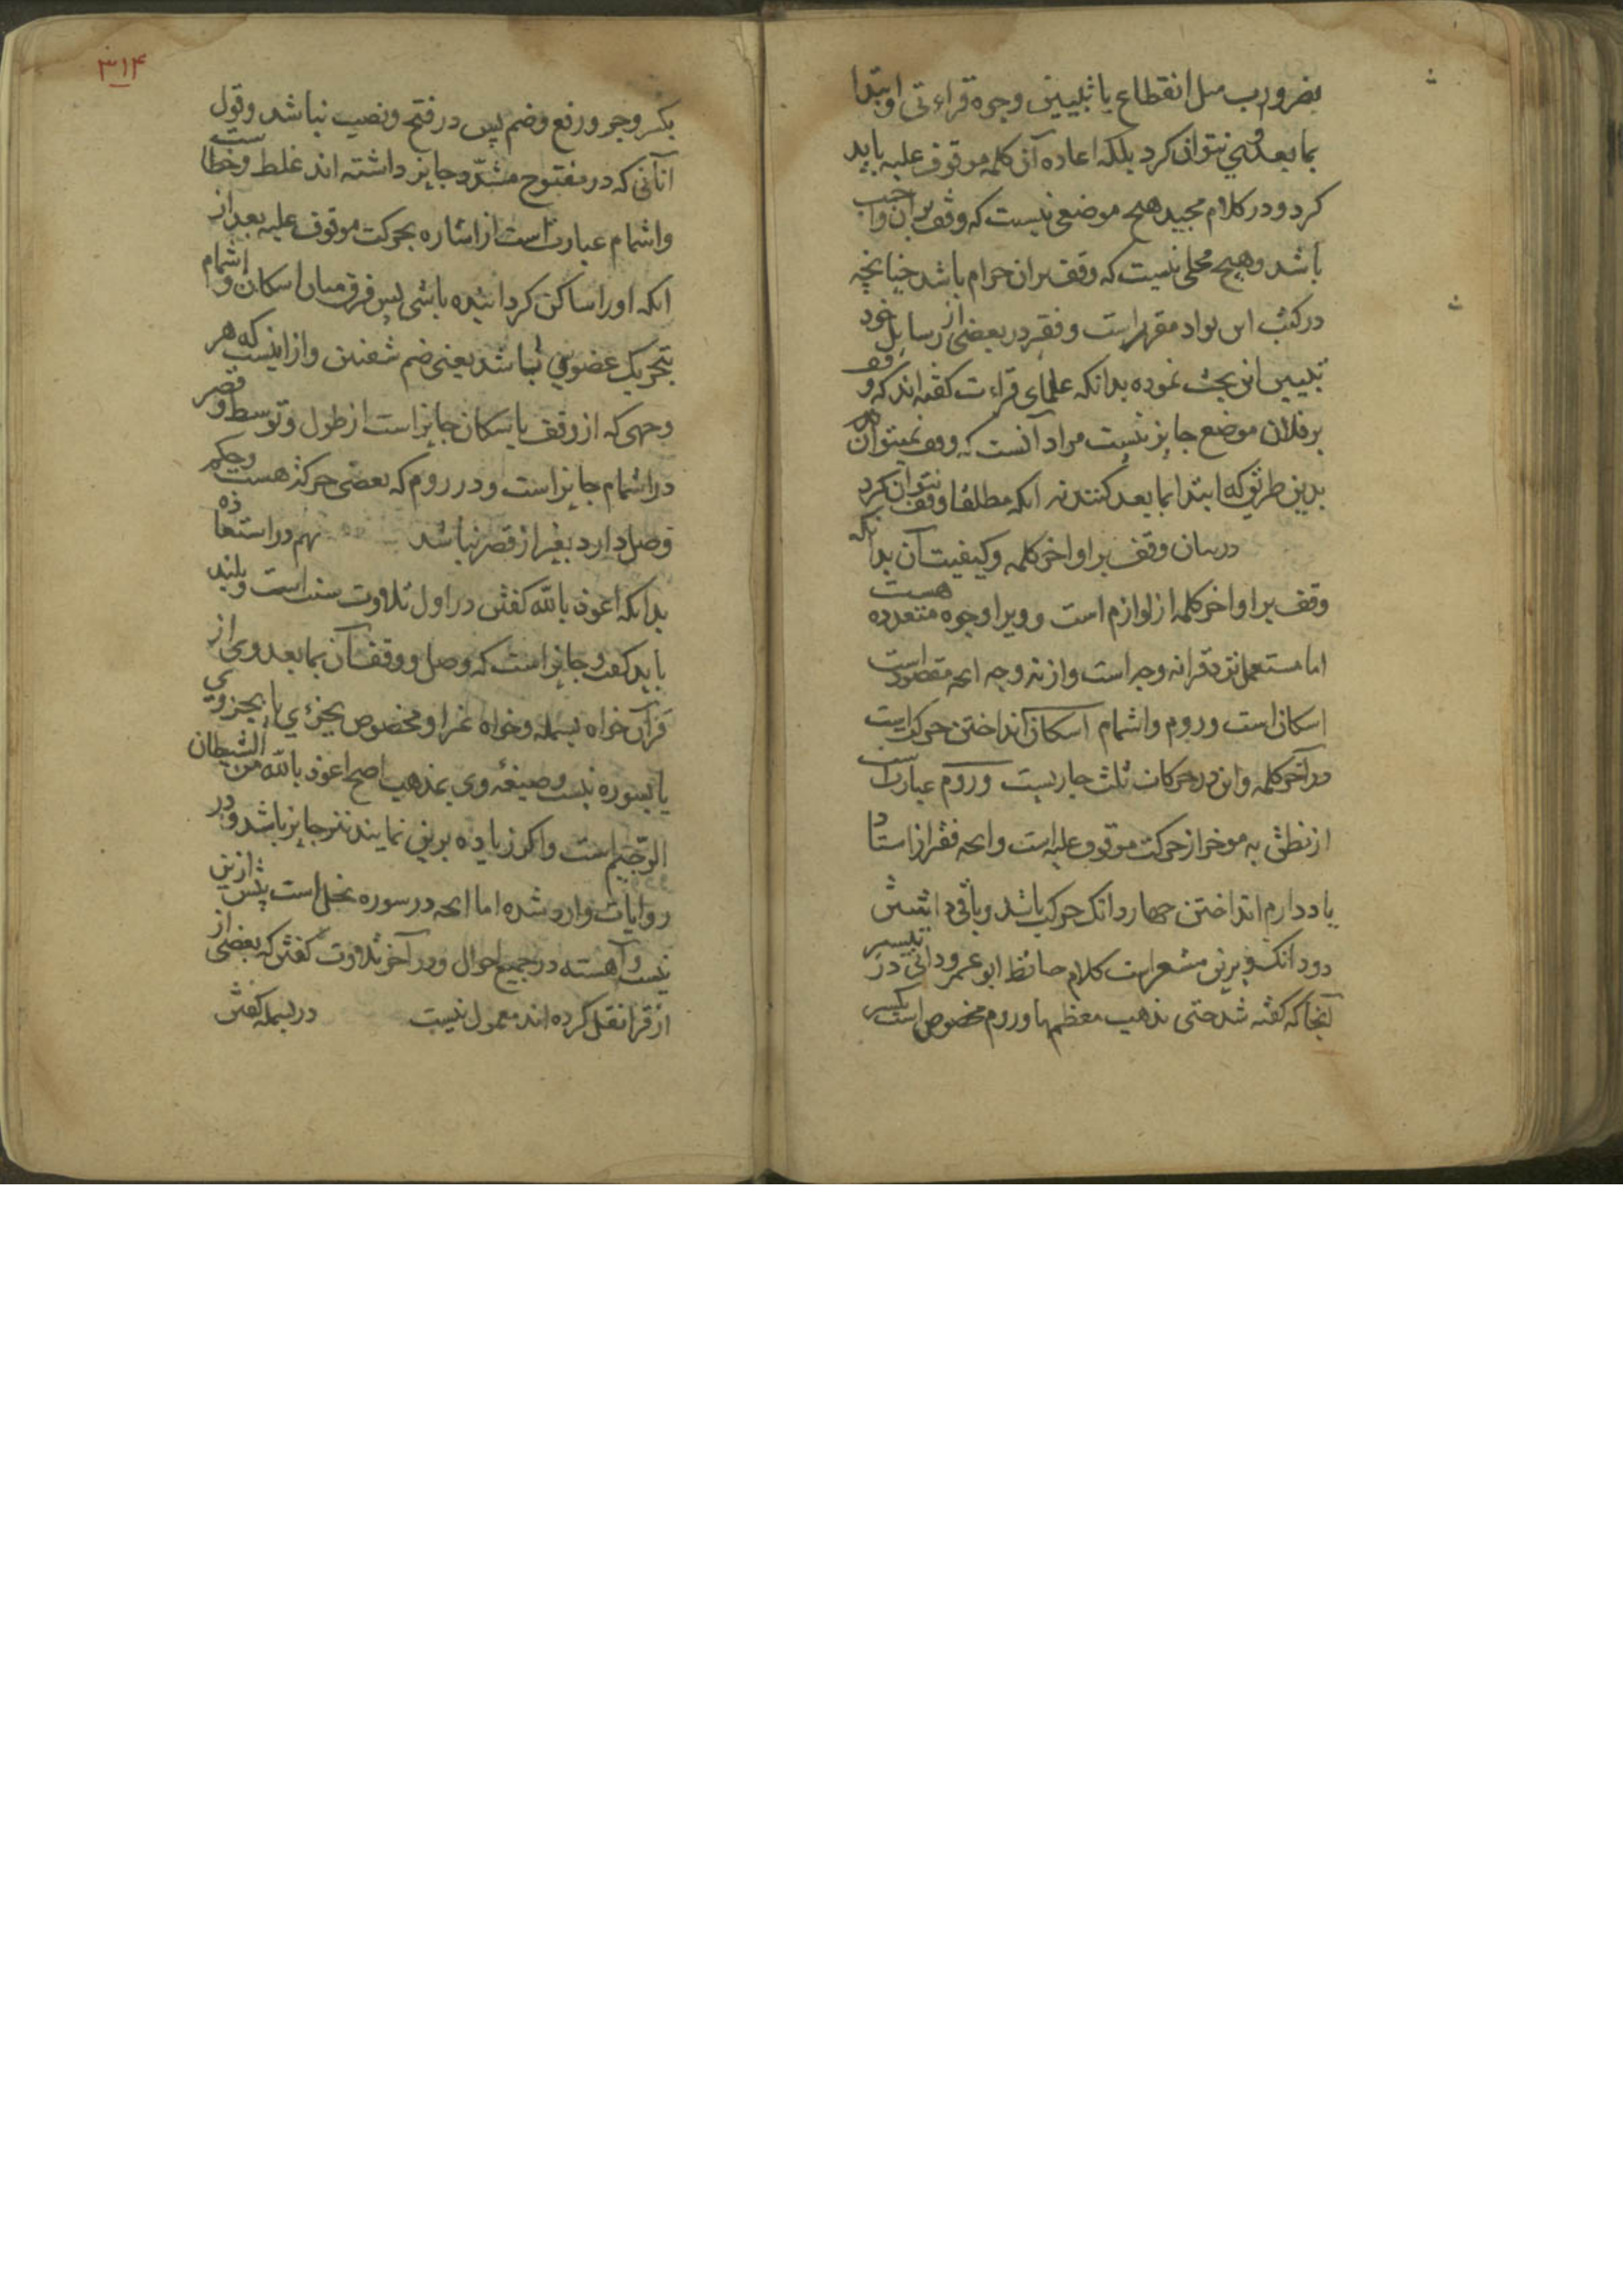 بضرورت مثل انقطاع یا تبیین وجوه قراءتی وابتدا
بما بعد وی نتوان کرد بلکه اعاده آن کلمه موقوف علیه باید
کرد و در کلام مجید هیچ موضعی نیست که وقف بر آن واجب
باشد و هیچ محلی نیست که وقف بران حرام باشد چنانچه
در کتب این مواد مقرر است و فقیر در بعضی از رسایل خود
تبیین این بحث نموده بدانکه علمای قراءت گفته اند که وقف
بر فلان موضع جایز نیست مراد آنست که وقف نمیتوان
بدین طریق که ابتدا بما بعد کنند نه آنکه مطلقا وقف نتوان کرد
در بیان وقف بر اواخر کلمه و کیفیت آن بدانکه
وقف بر اواخر کلمه از لوازم است و ویرا وجوه متعدده هست
اما مستعمل نزد قرا نه وجه است و از نه وجه آنچه مقصود است
اسکان است و روم و اشمام اسکان انداختن حرکت است
در آخر کلمه و این در حرکات ثلث جاریست و روم عبارت است
از نطق به موخر از حرکت موقوف علیه است و آنچه فقیر از استاد
یاد دارم انداختن چهار دانک حرکت باشد و باقی داشتن
دو دانک و برین مشعر است کلام حافظ ابو عمرو دانی در تیسیر
آنجا که گفته شد حتی یذهب معظمها و روم مخصوص است بکسر
۳۱۴
بکسر و جر و رفع و ضم پس در فتح و نصب نباشد و قول
آنانی که در مفتوح مشدّد جایز داشته اند غلط و خطاست
و اشمام عبارت است از اشاره بحرکت موقوف علیه بعد از
آنکه او را ساکن کردانیده باشی پس فرق میان اسکان و اشمام
بتحریک عضوی باشد یعنی ضم شفتین و از اینست که هر
وجهی که از وقف باسکان جایز است از طول و توسط و قصر
در اشمام جایز است و در روم که بعضی حرکه هست و حکم
وصل دارد بغیر از قصر نباشد نهم در استعاذه
بدانکه اعوذ بالله گفتن در اول تلاوت سنت است و بلند
باید گفت و جایز است که وصل و وقف آن بما بعد وی از
قرآن خواه بسمله و خواه غیر او مخصوص بجزئی یا بجزوی
یا بسوره نیست و صیغه وی بمذهب اصح اعوذ بالله من الشیطان
الرّجیم است و اگر زیاده برین نمایند نیز جایز باشد و در
روایات وارد شده اما آنچه در سوره نحل است پیش ازین
نیست و آهسته در جمیع احوال و در آخر تلاوت گفتن که بعضی از
از قرا نقل کرده اند معمول نیست در بسمله گفتن